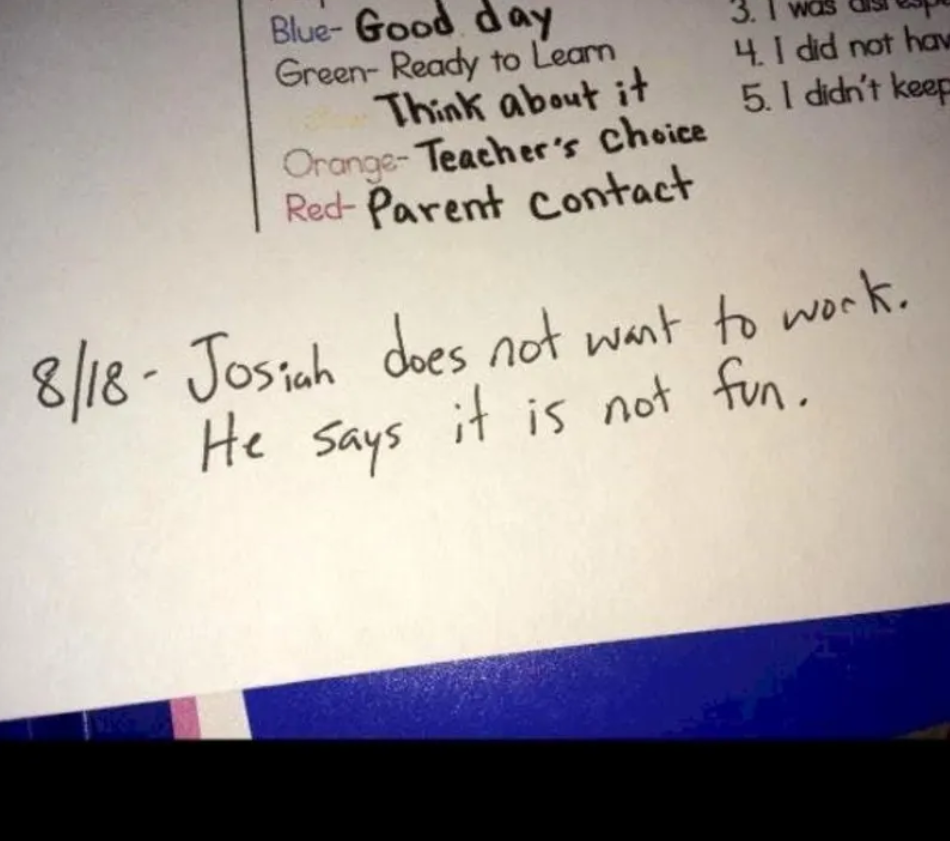 Blue- Good day
Green- Ready to Learn
Think about it
Orange- Teacher's choice
Red- Parent contact
3. I was
4. I did not
5. I didn't keep
8/18- Josiah does not want to work.
He says it is not fun.